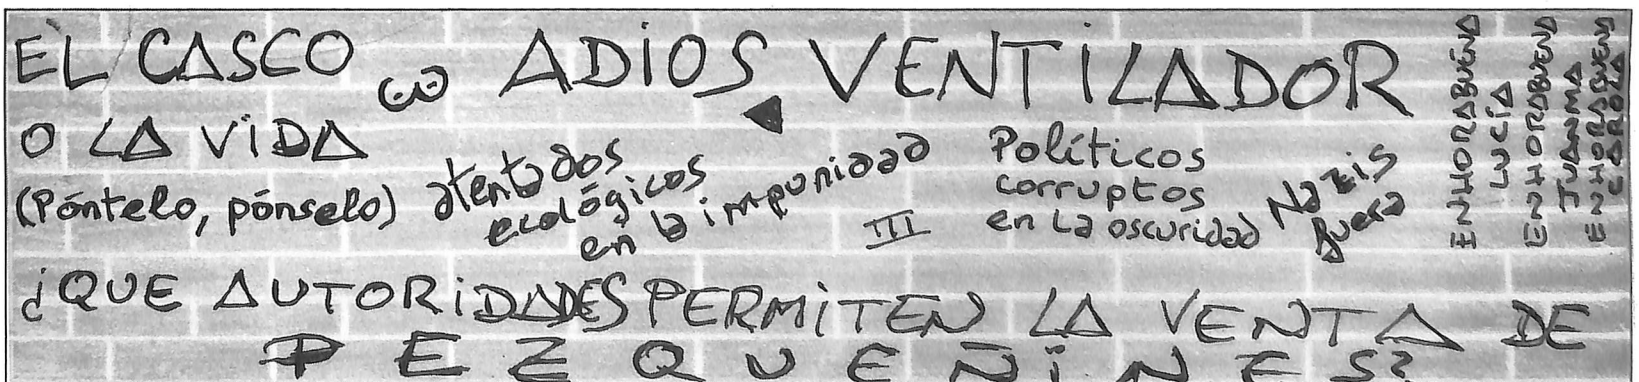 EL CASCO
O LA VIDA
(Póntelo, pónselo)
ADIOS VENTILADOR
atentados
ecológicos
en la impunidad
III
Políticos
corruptos
en la oscuridad
Nazis
fuera
ENHORABUENA
LUCÍA
ENHORABUENA
JUANMA
ENHORABUENA
CAROLA
¿QUE AUTORIDADES PERMITEN LA VENTA DE
PEZQUEÑINES?